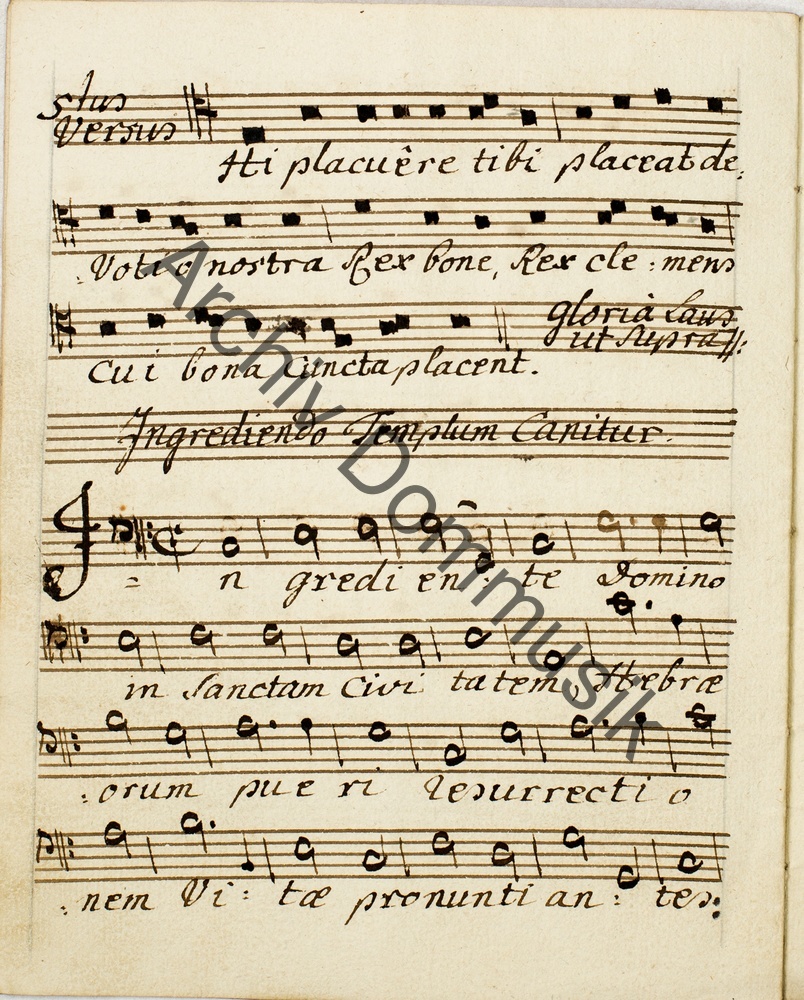 5tus
Versus
Hi placuêre tibi placeat de:
:Votio nostra Rex bone, Rex cle:mens
Gloria Laus
ut supra
Cui bona Cuncta placent.
Ingrediendo Templum Canitur.
In gredi en: te Domino
in Sanctam Civi tatem, Hebræ
:orum pue ri Resurrecti o
:nem Vi: tæ pronunti an: tes:
Archiv Dommusik